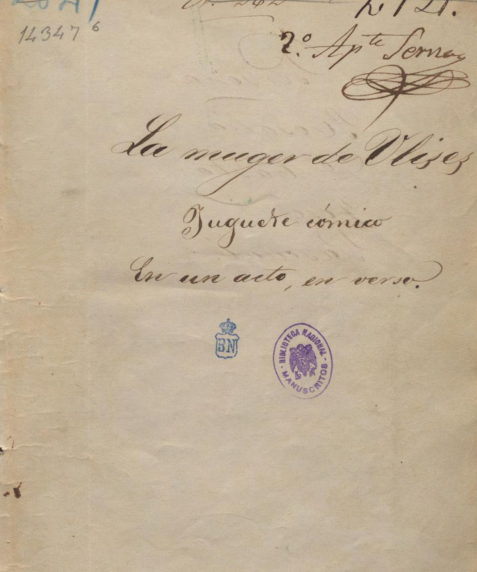 14347 6
2.º Apte Serra
La muger de Ulises
Juguete cómico
En un acto, en verso.
BN
BIBLIOTECA NACIONAL
MANUSCRITOS